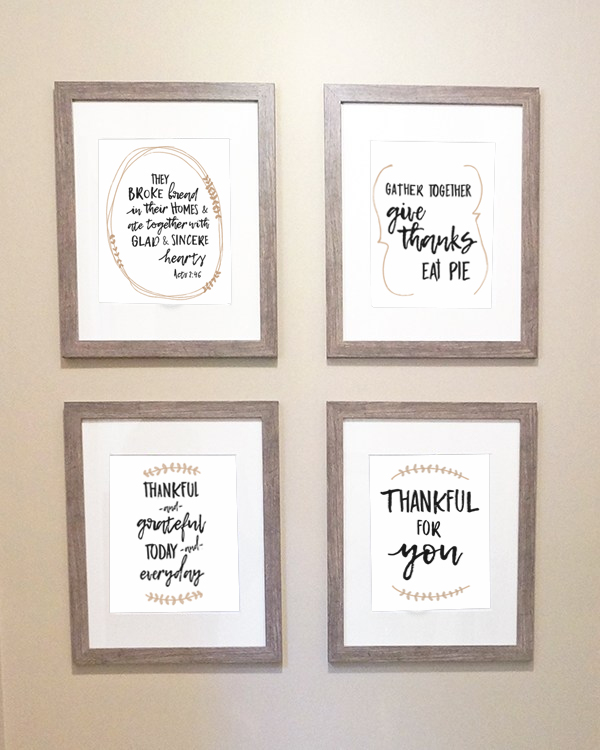 THEY
BROKE bread
in their HOMES &
ate together with
GLAD & SINCERE
hearts
Acts 2:46
GATHER TOGETHER
give
thanks
EAT PIE
THANKFUL
-and-
grateful
TODAY -and-
everyday
THANKFUL
FOR
you